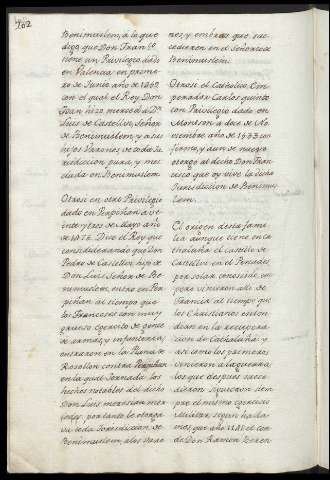 702
Benimuslem, a la que
diga que Don Franco
tiene un Privilegio dado
en Valencia en prime
ro de Junio año de 1462
con el qual el Rey Don
Juan hizo merced a Dn
Luis de Castellvi, Señor
de Benimuslem, y a sus
hijos Varones de toda Ju
risdiccion pura, y mes
dada en Benimuslem
Otrosi en otro Privilegio
dado en Perpiñan a ve
inte y tres de Mayo año
de Dice el Rey que
considerando que Don
Pedro de Castellvi, hijo de
Don Luis Señor de Be
nimuslem, entro en Per
piñan al tiempo que
los Franceses con muy
grueso Exercito de gente
de armas, y infanteria,
entraron en la Plana de
Rosellon contra Perpiñan
en la qual Jornada, los
hechos notables del dicho
Don Luis merecian mer
por tanto le otorga
la Jurisdiccion de
Benimuslem, a los Varo
nes y embras que suc
cedieren en el Señorio de
Benimuslem.
Otrosi el Catholico Em
perador Carlos quinto
con Privilegio dado en
Monzon a dies de No
viembre año de 1533 con
firma, y aun de nuevo
otorgo al dicho Don Fran
cisco que oy vive la dicha
Jurisdiccion de Benimus
lem.
El origen desta fami
lia aunque tiene en ca
thaluña el castillo de
Castellvi en el Penades
por solar conocido, em
pero vinieron alli de
Francia al tiempo que
los Christianos enten
dian en la recupera
cion de Cathaluña: y
asi como los primeros
vinieron a la guerra,
los que despues suce
dieron siguieron siem
pre el mismo exercicio
militar, segun halla
mos que año el con
de Don Ramon Beren